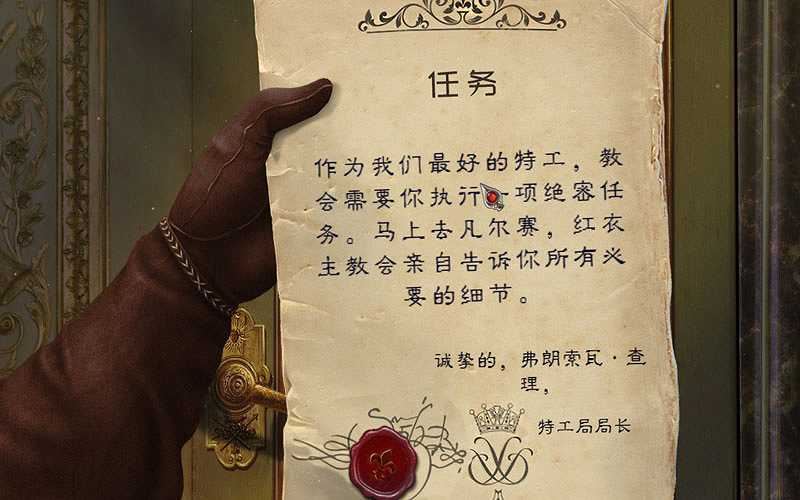 任务
作为我们最好的特工，教
会需要你执行一项绝密任
务。马上去凡尔赛，红衣
主教会亲自告诉你所有必
要的细节。
诚挚的，弗朗索瓦·查
理，
特工局局长